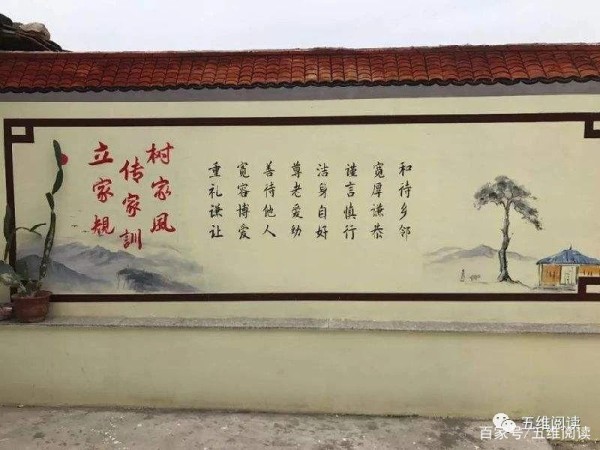 树家风
传家訓
立家規
和待乡邻
寬厚谦恭
谨言慎行
洁身自好
尊老爱幼
善待他人
寬容博爱
重礼谦让
五维阅读
百家号/五维阅读